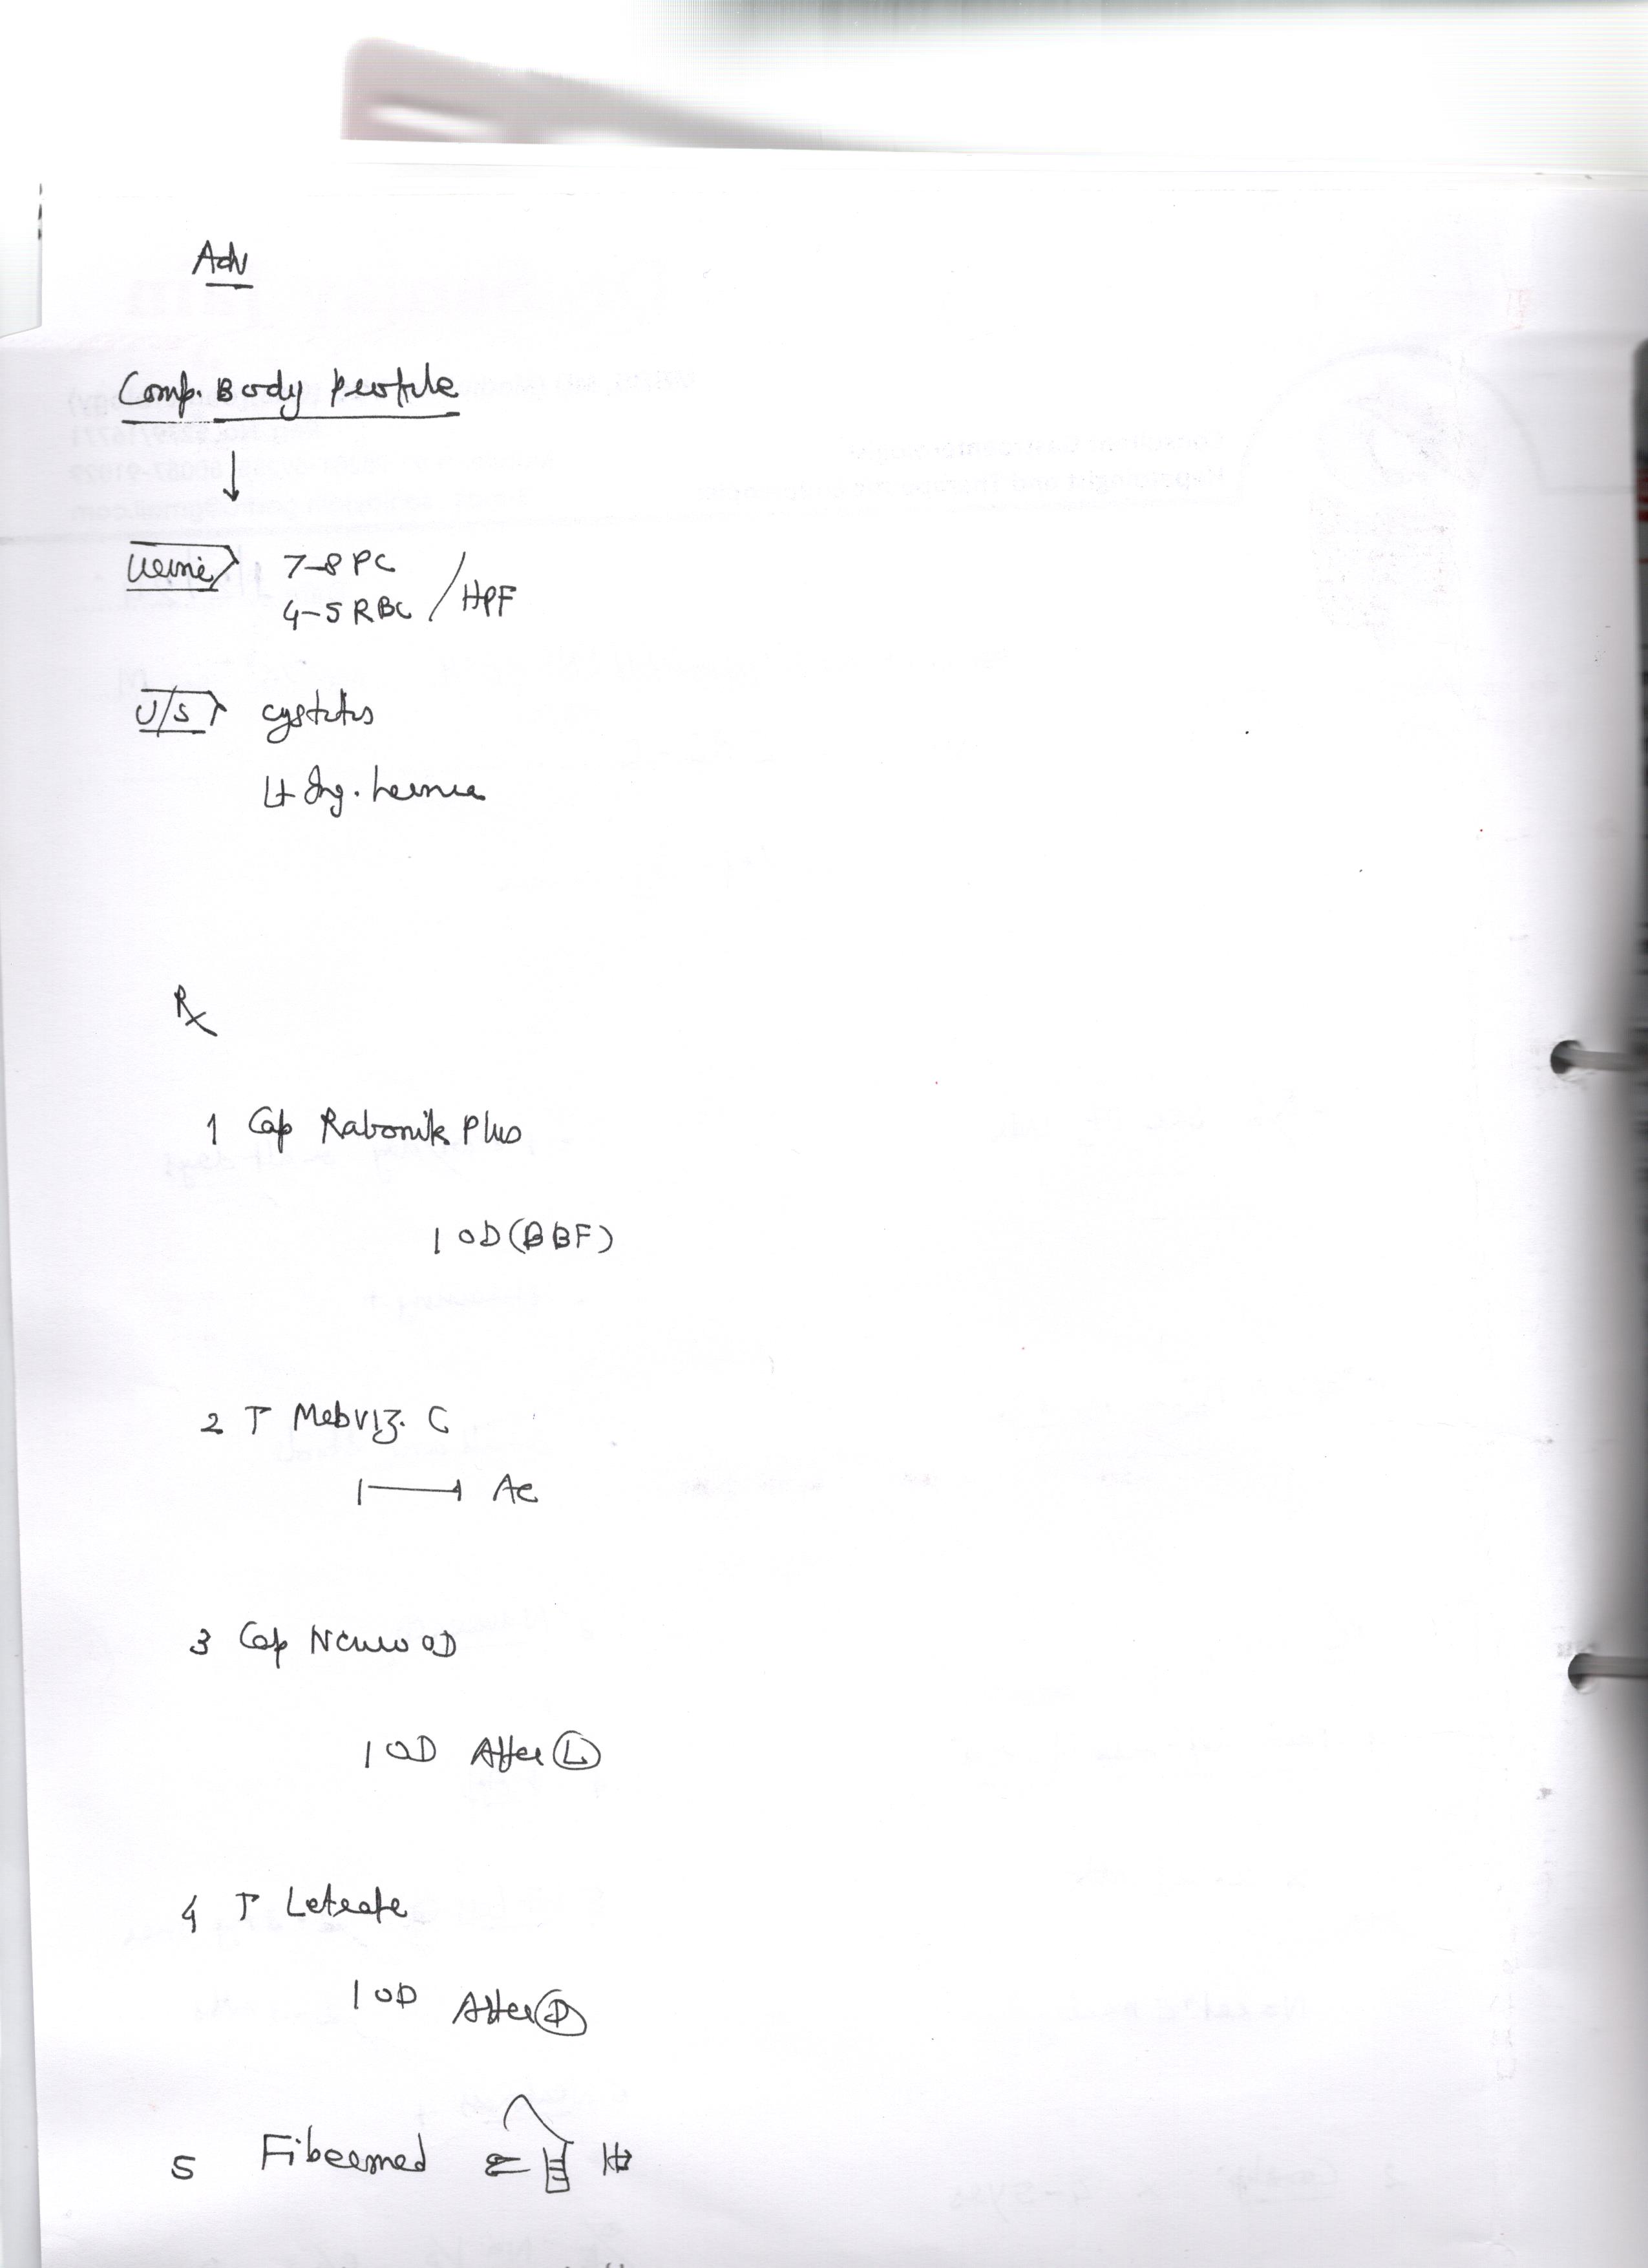 Adv
Comp. Body profile
Urine 7-8 PC
4-5 RBC / HPF
U/S cystitis
Lt Ing. hernia
Rx
1 Cap Rabonik Plus
1 OD (BBF)
2 T Mebviz. C
1—1 AC
3 Cap Neuro OD
1 OD After L
4 T Letrafe
1 OD After D
5 Fibermed